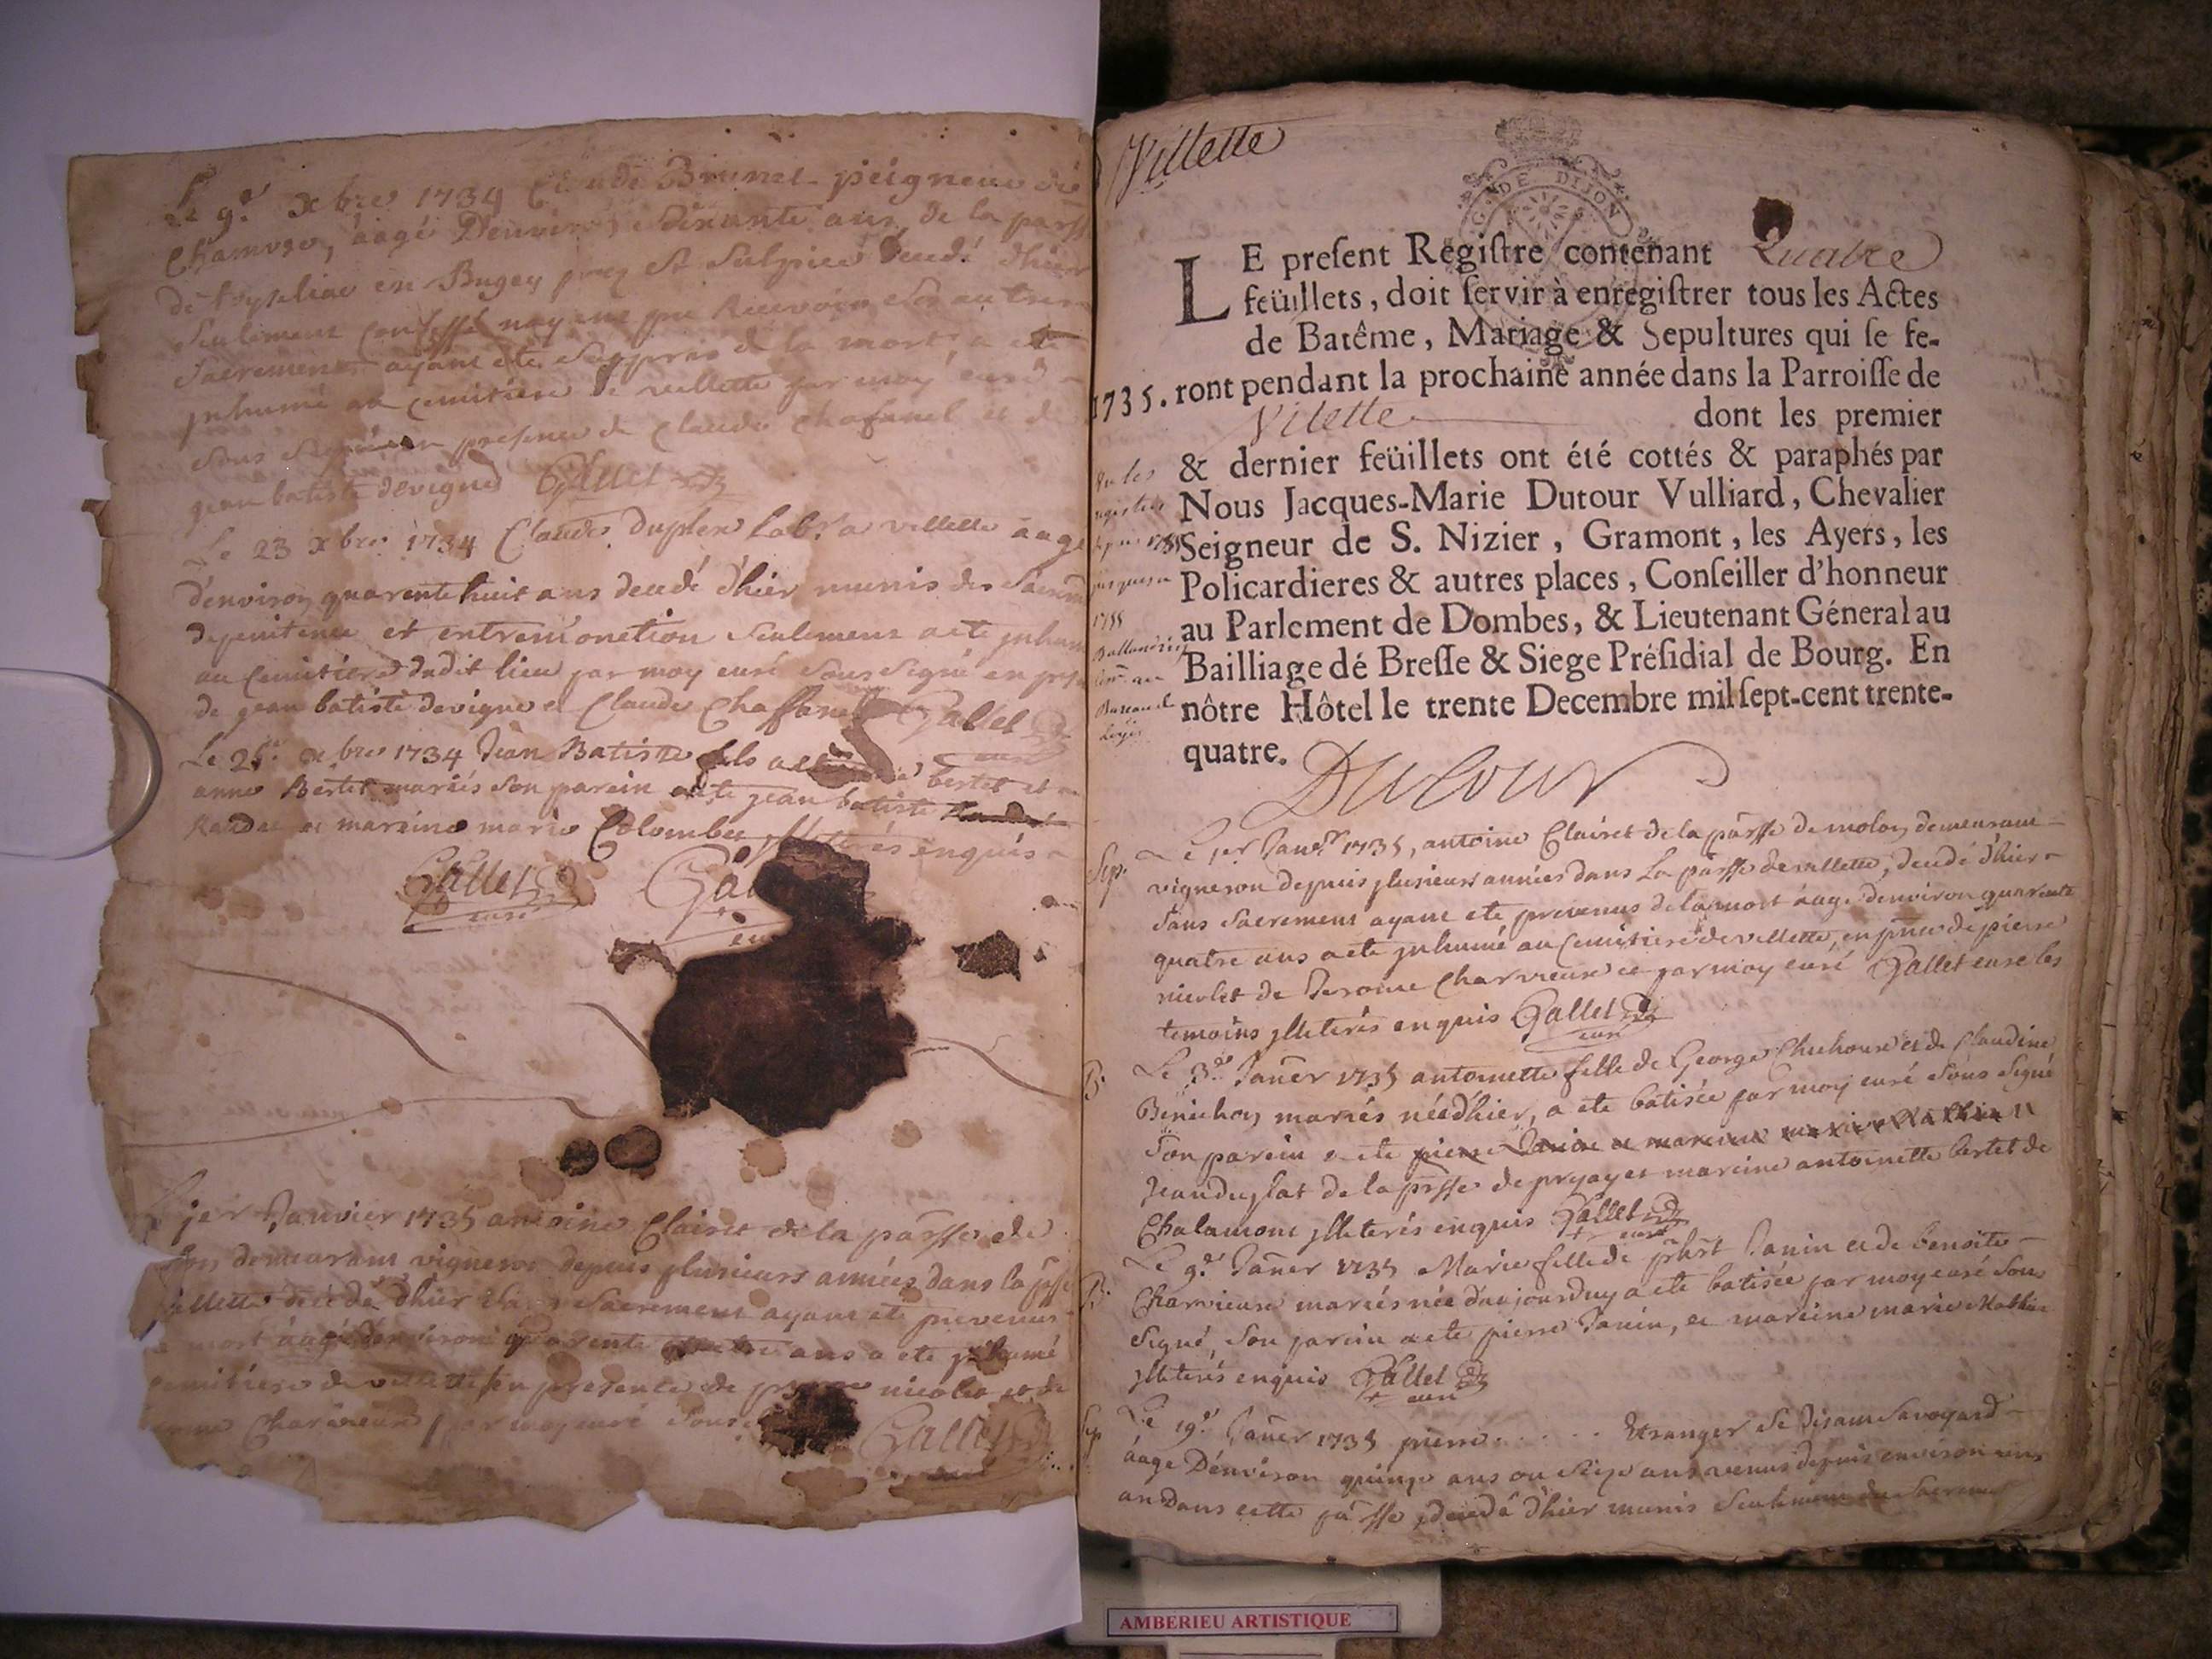 Le 9.e xbre 1734 Claude Brunet peigneur de
Chanvre, áagé Denviron soixante ans, de la parsse
en Bugey St Sulpice decedé d'hier
seulement confessé nayant pu Recevoir les autres
sacrements ayant ete surpris de la mort, a ete
jnhumé au cemitiere de villette par moy curé
sous signé en presence de claude chafanel et de
jean batiste devigne Gallet
Le 23 xbre 1734 Claude duplex Lab.r a villette áagé
d'environ quarente huit ans decedé d'hier munis des sacrem
de penitence et extremonction seulement a ete jnhum
au cemitiere dudit lieu par moy curé sous signé en
de jean batiste devigne et Claude Chaffanel Gallet
curé
Le xbre 1734 Jean Batiste fils a bertet et
anne Bertet mariés son parein a ete jean batiste
et mareine marie Colombet jlleterés enquis
Gallet
curé
Le jer Janvier 1735 antoine Clairet de la parsse de
demeurant vigneron depuis plusieurs années dans la psse
villette decedé d'hier sans sacrement ayant ete prevenus
mort áagé d'environ quarente quatre ans a ete jnhumé
cemitiere de villette en presence de pierre nicolet et de
Charvieux par moy curé sous
Gallet
Villette
G. DE DIJON
LE present Registre contenant Quatre
feüillets, doit servir à enregistrer tous les Actes
de Batême, Mariage & Sepultures qui se fe-
1735. ront pendant la prochaine année dans la Parroisse de
Vilette dont les premier
& dernier feüillets ont été cottés & paraphés par
Nous Jacques-Marie Dutour Vulliard, Chevalier
Seigneur de S. Nizier, Gramont, les Ayers, les
Policardieres & autres places, Conseiller d'honneur
au Parlement de Dombes, & Lieutenant Géneral au
Bailliage dé Bresse & Siege Présidial de Bourg. En
nôtre Hôtel le trente Decembre mil sept-cent trente-
quatre.
Dutour
Sep. Le 1er Janer 1735, antoine Clairet de la parsse de molon demeurant
vigneron depuis plusieurs années dans la parsse de villette, decedé d'hier
sans sacrement ayant ete prevenus de la mort áagé d'environ quarente
quatre ans a ete jnhumé au cemitiere de villette, en pnce de pierre
nicolet de Jerome Charvieux et par moy curé Gallet curé les
temoins jlleterés enquis Gallet
curé
B. Le 3.e Janer 1735 antoinette fille de George et de Claudine
Benichon mariés née d'hier, a ete batisée par moy curé sous signé
son parein a ete pierre Janin et mareine marie Mathieu
jean duplat de la psse de pryay et mareine antoinette bertet de
Chalamont jlleterés enquis Gallet
curé
B. Le 9.e Janer 1735 Marie fille de Janin et de benoite
Charvieux mariés née daujourduy a ete batisée par moy curé sous
signé, son parein a ete pierre Janin, et mareine marie Mathieu
jlleterés enquis Gallet
curé
Sep Le 19.e Janer 1735 pierre . . . . . Etranger se disant savoyard
áagé D'environ quinze ans ou seize ans venus depuis environ un
an dans cette parsse, decedé d'hier munis seulement du sacrement
AMBERIEU ARTISTIQUE